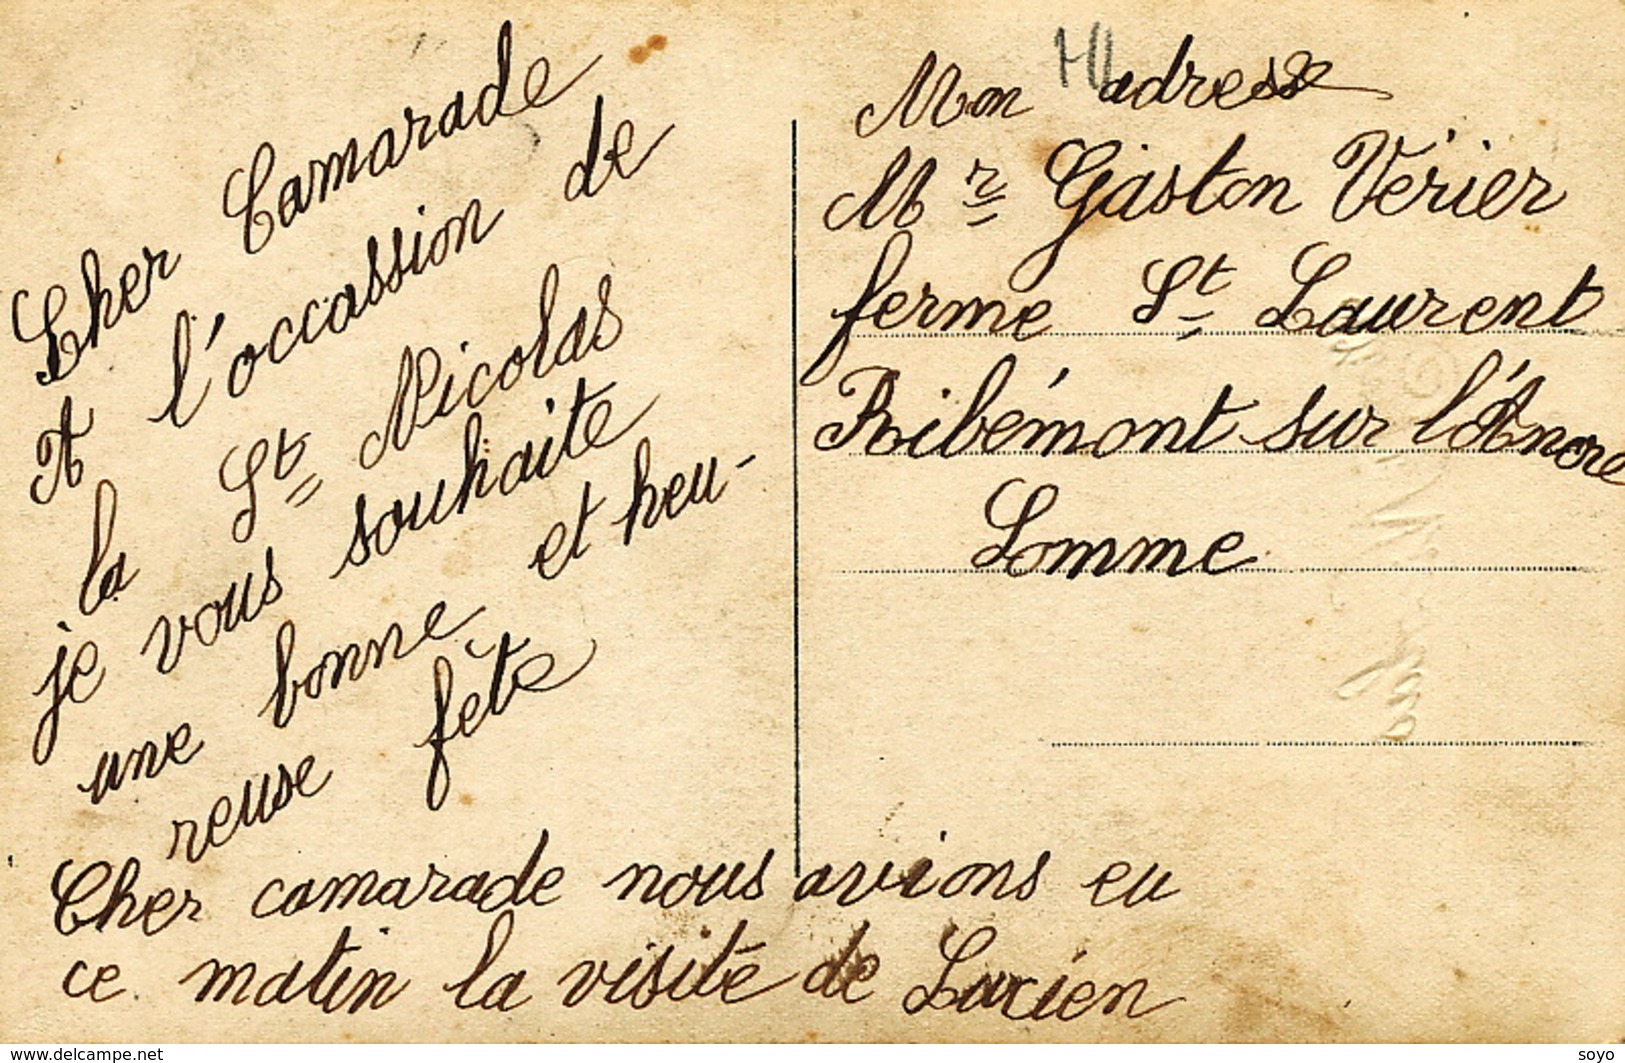 Cher Camarade
A l'occassion de
la St Nicolas
je vous souhaite
une bonne et heu-
reuse fête
Cher camarade nous avions eu
ce matin la visite de Lucien
Mon adresse
Mr Gaston Verier
ferme St Laurent
Ribémont sur l'Ancre
Somme
www.delcampe.net
soyo